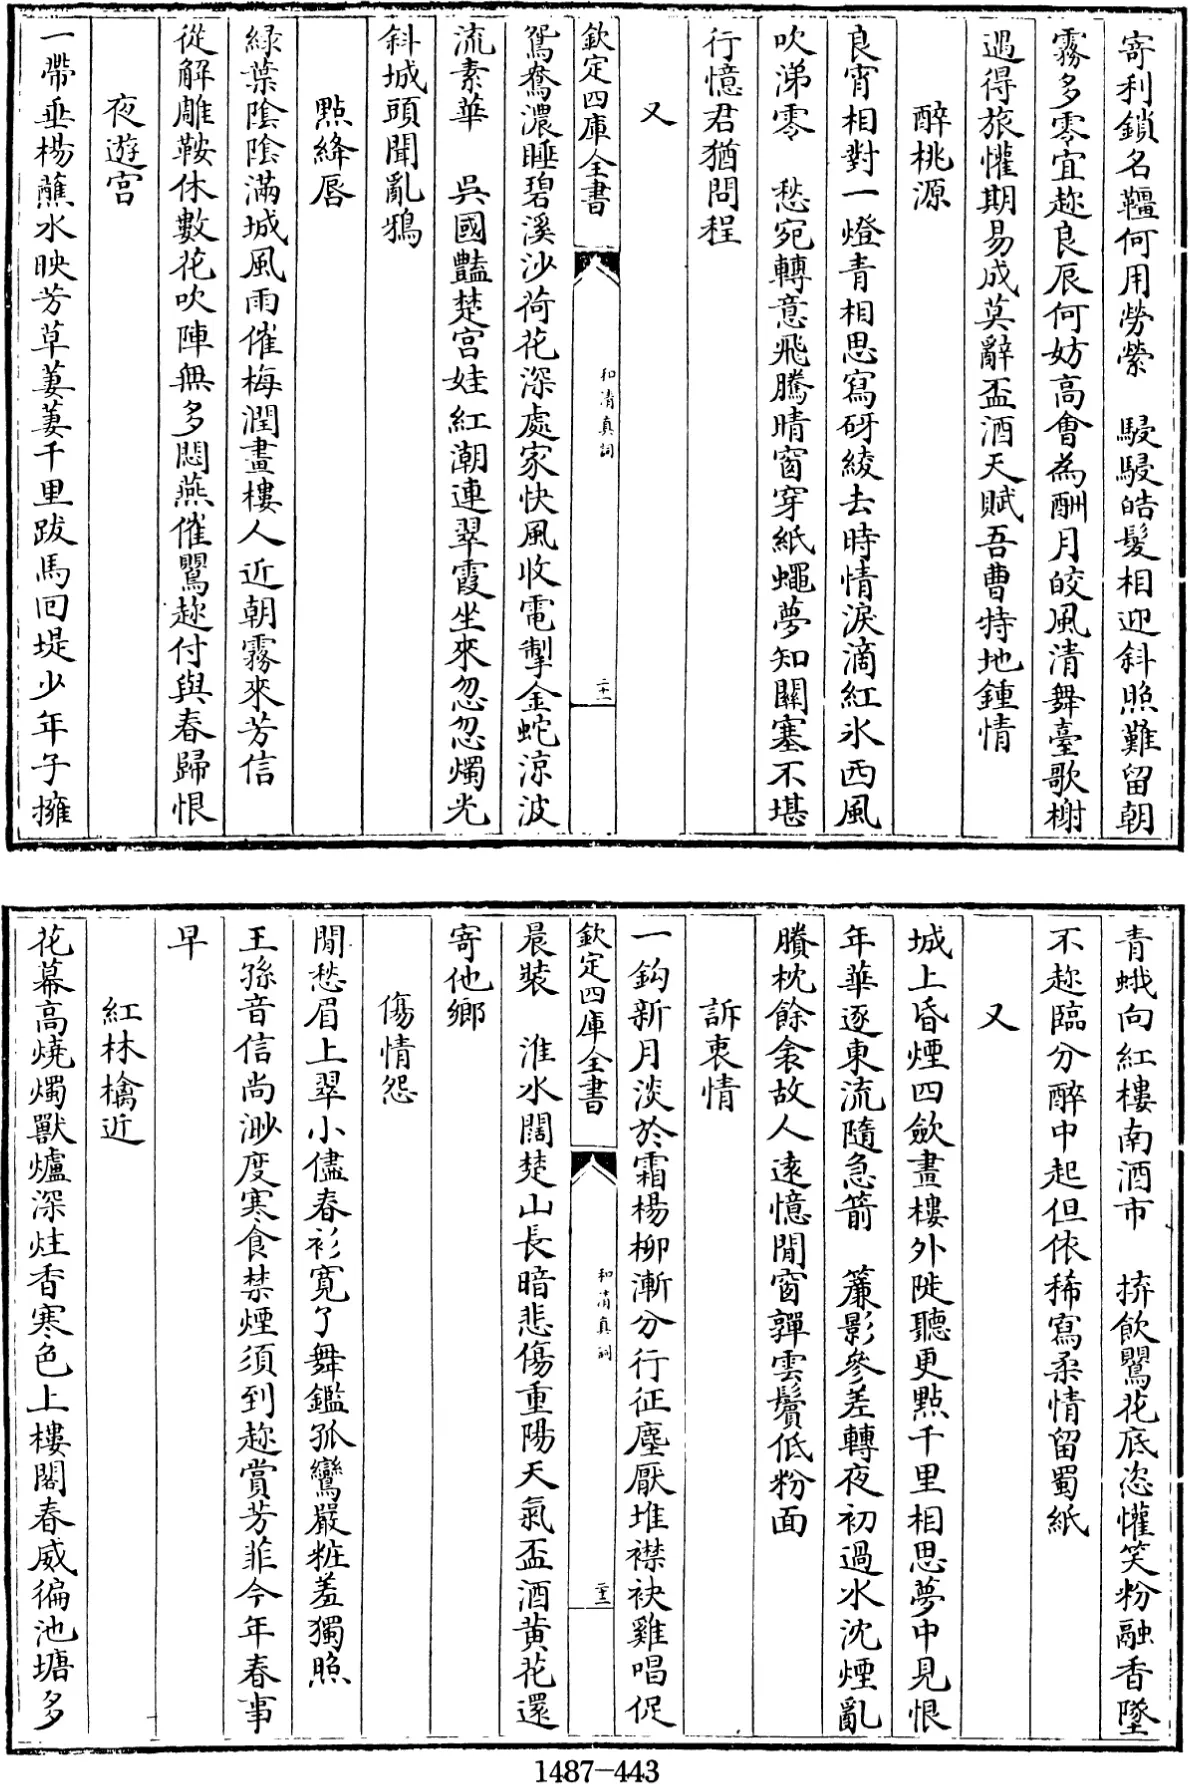 寄利鎖名韁何用勞縈　駸駸皓髮相迎斜照難留朝
霧多零宜趂良辰何妨高會為酬月皎風清舞臺歌榭
遇得旅懽期易成莫辭盃酒天賦吾曹特地鍾情
醉桃源
良宵相對一燈青相思寫砑綾去時情淚滴紅氷西風
吹涕零　愁宛轉意飛騰晴窗穿紙蠅夢知關塞不堪
行憶君猶問程
又
欽定四庫全書
和清真詞
二十一
鴛鴦濃睡碧溪沙荷花深處家快風收電掣金蛇涼波
流素華　吳國豔楚宮娃紅潮連翠霞坐來忽忽燭光
斜城頭聞亂鴉
點絳唇
綠葉陰陰滿城風雨催梅潤畫樓人近朝霧來芳信
從解雕鞍休數花吹陣無多悶燕催鸎趂付與春歸恨
夜遊宮
一帶垂楊蘸水映芳草萋萋千里跋馬回堤少年子擁
青蛾向紅樓南酒市　拚飲鸎花底恣懽笑粉融香墜
不趂臨分醉中起但依稀寫柔情留蜀紙
又
城上昏煙四歛畫樓外陡聽更點千里相思夢中見恨
年華逐東流隨急箭　簾影參差轉夜初過水沈煙亂
賸枕餘衾故人遠憶閒窗嚲雲鬟低粉面
訴衷情
一鈎新月淡於霜楊柳漸分行征塵厭堆襟袂雞唱促
欽定四庫全書
和清真詞
二十二
晨裝　淮水闊楚山長暗悲傷重陽天氣盃酒黃花還
寄他鄉
傷情怨
閒愁眉上翠小儘春衫寛了舞鑑孤鸞嚴粧羞獨照
王孫音信尚渺度寒食禁煙須到趂賞芳菲今年春事
早
紅林檎近
花幕高燒燭獸爐深炷香寒色上樓閣春威徧池塘多
1487—443